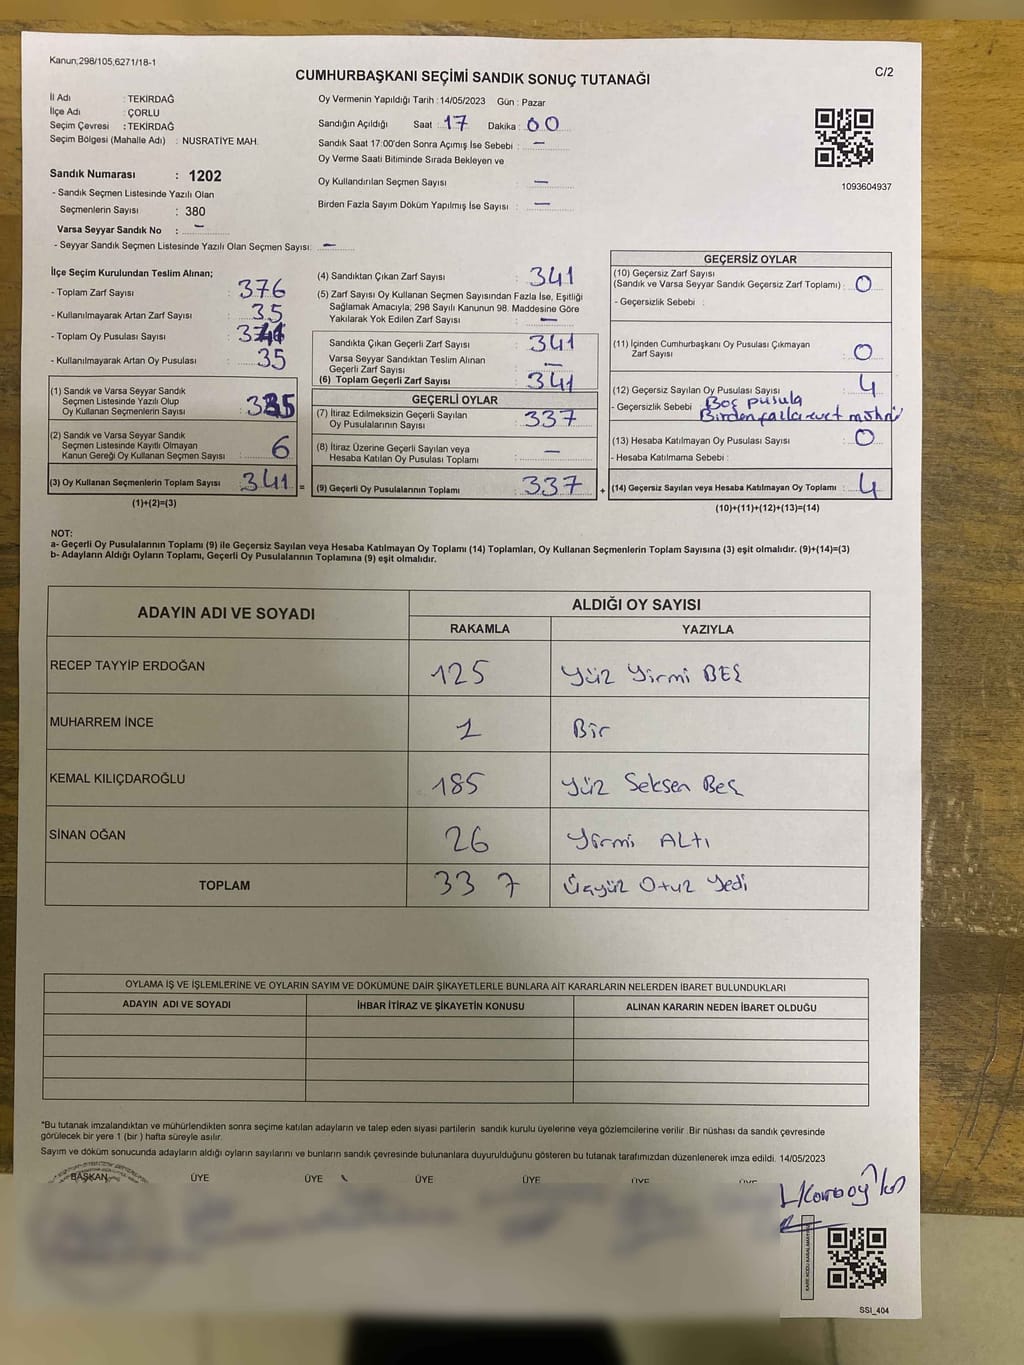 Kanun,298/105,6271/18-1
CUMHURBAŞKANI SEÇİMİ SANDIK SONUÇ TUTANAĞI
C/2
İl Adı : TEKİRDAĞ
İlçe Adı : ÇORLU
Seçim Çevresi : TEKİRDAĞ
Seçim Bölgesi (Mahalle Adı) : NUSRATİYE MAH.
Sandık Numarası : 1202
- Sandık Seçmen Listesinde Yazılı Olan
Seçmenlerin Sayısı : 380
Varsa Seyyar Sandık No : -
- Seyyar Sandık Seçmen Listesinde Yazılı Olan Seçmen Sayısı: -
Oy Vermenin Yapıldığı Tarih : 14/05/2023 Gün : Pazar
Sandığın Açıldığı Saat : 17 Dakika : 00
Sandık Saat 17:00'den Sonra Açımış İse Sebebi : -
Oy Verme Saati Bitiminde Sırada Bekleyen ve
Oy Kullandırılan Seçmen Sayısı : -
Birden Fazla Sayım Döküm Yapılmış İse Sayısı : -
1093604937
İlçe Seçim Kurulundan Teslim Alınan;
- Toplam Zarf Sayısı : 376
- Kullanılmayarak Artan Zarf Sayısı : 35
- Toplam Oy Pusulası Sayısı :
- Kullanılmayarak Artan Oy Pusulası : 35
(1) Sandık ve Varsa Seyyar Sandık
Seçmen Listesinde Yazılı Olup
Oy Kullanan Seçmenlerin Sayısı : 335
(2) Sandık ve Varsa Seyyar Sandık
Seçmen Listesinde Kayıtlı Olmayan
Kanun Gereği Oy Kullanan Seçmen Sayısı : 6
(3) Oy Kullanan Seçmenlerin Toplam Sayısı : 341 =
(1)+(2)=(3)
(4) Sandıktan Çıkan Zarf Sayısı : 341
(5) Zarf Sayısı Oy Kullanan Seçmen Sayısından Fazla İse, Eşitliği
Sağlamak Amacıyla, 298 Sayılı Kanunun 98. Maddesine Göre
Yakılarak Yok Edilen Zarf Sayısı : -
Sandıkta Çıkan Geçerli Zarf Sayısı : 341
Varsa Seyyar Sandıktan Teslim Alınan
Geçerli Zarf Sayısı : -
(6) Toplam Geçerli Zarf Sayısı : 341
GEÇERLİ OYLAR
(7) İtiraz Edilmeksizin Geçerli Sayılan
Oy Pusulalarının Sayısı : 337
(8) İtiraz Üzerine Geçerli Sayılan veya
Hesaba Katılan Oy Pusulası Toplamı : -
(9) Geçerli Oy Pusulalarının Toplamı : 337 +
GEÇERSİZ OYLAR
(10) Geçersiz Zarf Sayısı
(Sandık ve Varsa Seyyar Sandık Geçersiz Zarf Toplamı) : 0
- Geçersizlik Sebebi :
(11) İçinden Cumhurbaşkanı Oy Pusulası Çıkmayan
Zarf Sayısı : 0
(12) Geçersiz Sayılan Oy Pusulası Sayısı : 4
- Geçersizlik Sebebi Boş pusula
Birden fazla evet mührü
(13) Hesaba Katılmayan Oy Pusulası Sayısı : 0
- Hesaba Katılmama Sebebi :
(14) Geçersiz Sayılan veya Hesaba Katılmayan Oy Toplamı : 4
(10)+(11)+(12)+(13)=(14)
NOT:
a- Geçerli Oy Pusulalarının Toplamı (9) ile Geçersiz Sayılan veya Hesaba Katılmayan Oy Toplamı (14) Toplamları, Oy Kullanan Seçmenlerin Toplam Sayısına (3) eşit olmalıdır. (9)+(14)=(3)
b- Adayların Aldığı Oyların Toplamı, Geçerli Oy Pusulalarının Toplamına (9) eşit olmalıdır.
ADAYIN ADI VE SOYADI
ALDIĞI OY SAYISI
RAKAMLA YAZIYLA
RECEP TAYYİP ERDOĞAN 125 Yüz Yirmi BEŞ
MUHARREM İNCE 1 Bir
KEMAL KILIÇDAROĞLU 185 Yüz Seksen Beş
SİNAN OĞAN 26 Yirmi ALTI
TOPLAM 33 7 Üçyüz Otuz Yedi
OYLAMA İŞ VE İŞLEMLERİNE VE OYLARIN SAYIM VE DÖKÜMÜNE DAİR ŞİKAYETLERLE BUNLARA AİT KARARLARIN NELERDEN İBARET BULUNDUKLARI
ADAYIN ADI VE SOYADI İHBAR İTİRAZ VE ŞİKAYETİN KONUSU ALINAN KARARIN NEDEN İBARET OLDUĞU
"Bu tutanak imzalandıktan ve mühürlendikten sonra seçime katılan adayların ve talep eden siyasi partilerin sandık kurulu üyelerine veya gözlemcilerine verilir .Bir nüshası da sandık çevresinde
görülecek bir yere 1 (bir ) hafta süreyle asılır.
Sayım ve döküm sonucunda adayların aldığı oyların sayılarını ve bunların sandık çevresinde bulunanlara duyurulduğunu gösteren bu tutanak tarafımızdan düzenlenerek imza edildi. 14/05/2023
BAŞKAN ÜYE ÜYE ÜYE ÜYE ÜYE ÜYE
SSI_404